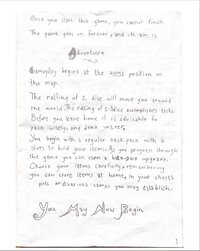 Once you start this game, you cannot finish
The game goes on forever, and its aim is
Adventure
Gameplay begins at the position on
the map.
The rolling of 2 dice will move you around
the world. The rolling of 3 dice accomplishes tasks.
Before you leave home it is advisable to
pack wisely and drink water.
You begin with a regular back pack with 6
slots to hold your items. As you progress through
the game you can earn a back-pack upgrade.
Choose your items carefully, remembering
you can store items at home, in your chest
or camps you may establish.
You May Now Begin
1